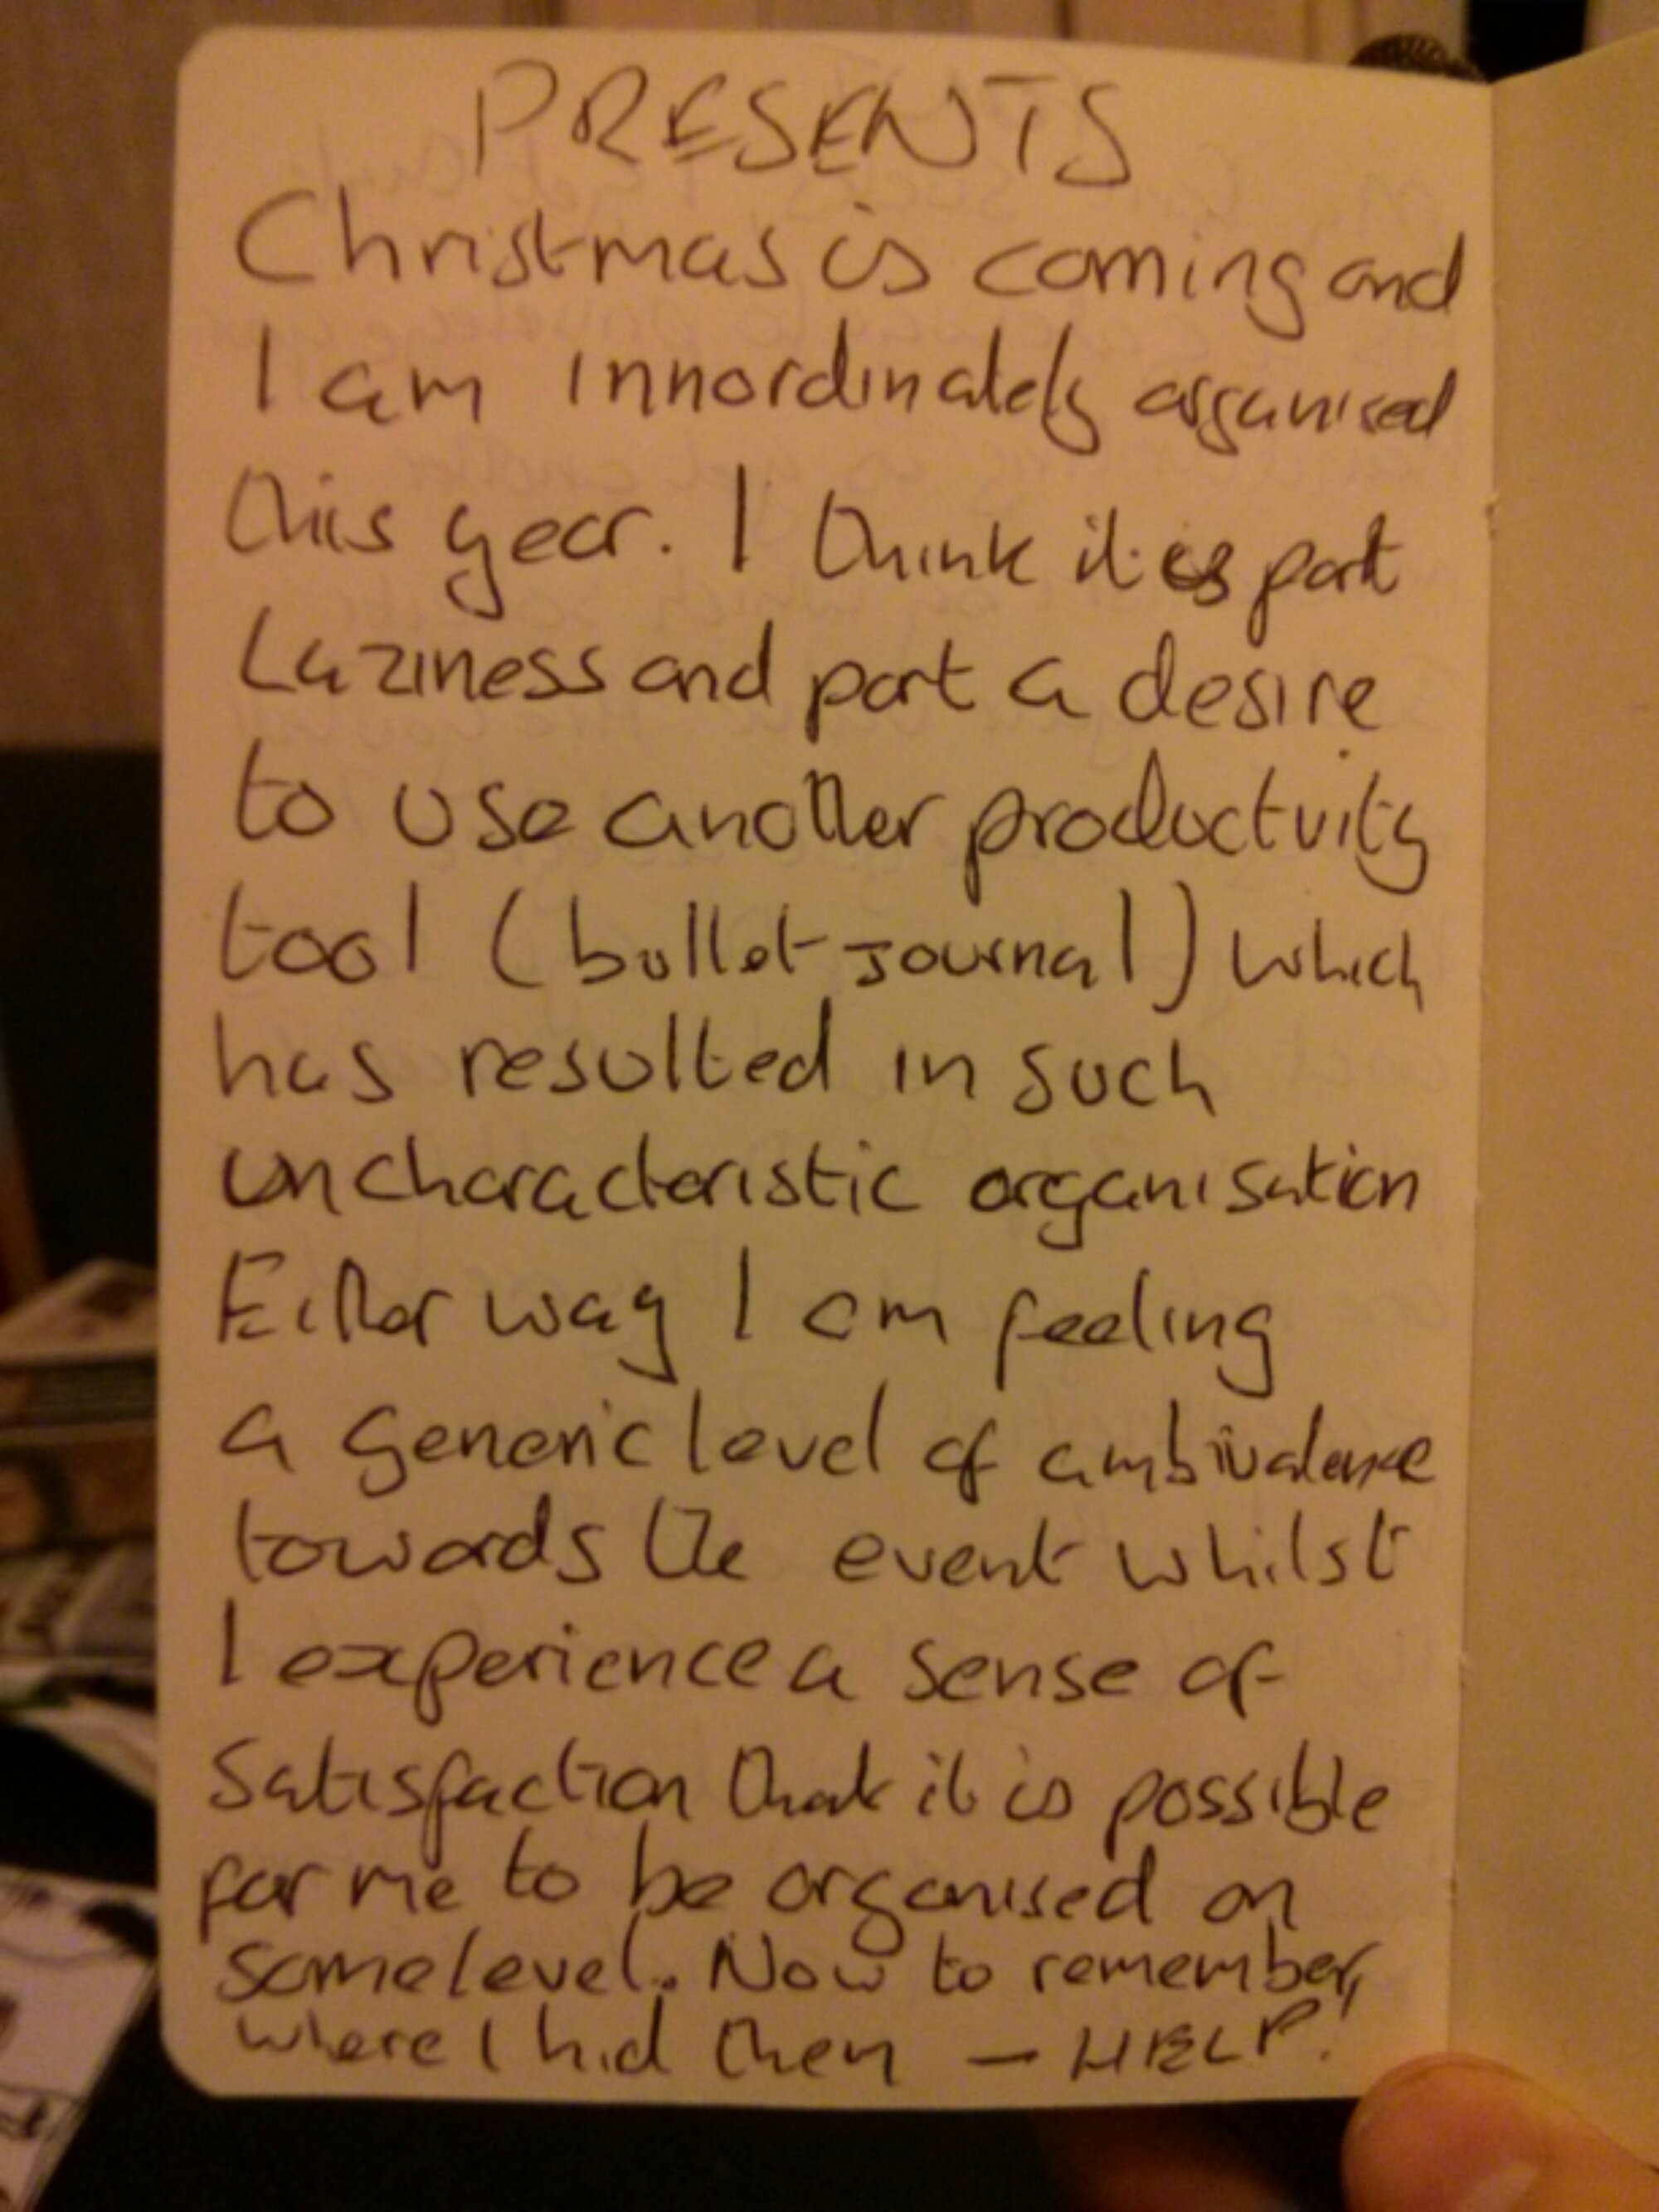 PRESENTS
Christmas is coming and
I am innordinately organised
this year. I think it is part
Laziness and part a desire
to use another productvity
tool (bullet-journal) which
has resulted in such
uncharacteristic organisation
Either way I am feeling
a generic level of ambivalence
towards the event whilst
I experience a sense of
satisfaction that it is possible
for me to be organised on
some level. Now to remember,
where I hid then – HELP!